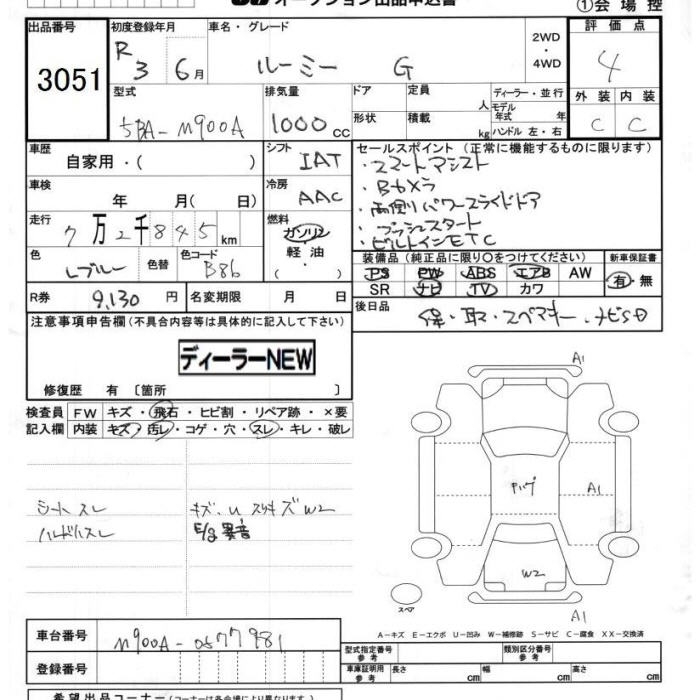 オークション出品申込書
①会場控
出品番号
3051
初度登録年月
R 3 6月
車名・グレード
ルーミー G
2WD・4WD
評価点
4
外装 内装
C C
型式
5BA-M900A
排気量
1000cc
ドア
定員 人
形状
積載 kg
ディーラー・並行
モデル年式 年式
ハンドル 左・右
車歴
自家用・( )
シフト
IAT
セールスポイント (正常に機能するものに限ります)
・スマートアシスト
・Bカメラ
・両側パワースライドドア
・プッシュスタート
・ビルトインETC
車検
年 月( 日)
冷房
AAC
走行
7万2千845km
燃料
ガソリン
・
軽油
・
( )
色
Lブルー
色替
色コード
B86
装備品 (純正品に限り○をつけてください)
PS PW ABS エアB AW
SR ナビ TV カワ
新車保証書
有・無
R券
9,130円
名変期限 月 日
後日品
保・取・スペアキー・ナビSD
注意事項申告欄(不具合内容等は具体的に記入して下さい)
ディーラーNEW
修復歴 有〔箇所 〕
検査員記入欄
FW キズ・飛石・ヒビ割・リペア跡・×要
内装 キズ・汚レ・コゲ・穴・スレ・キレ・破レ
シートスレ
ハンドルスレ
キズ.U スリキズ W2
E/g 異音
A1
A1
W2
A1
スペア
A-キズ E-エクボ U-凹み W-補修跡 S-サビ C-腐食 XX-交換済
車台番号
M900A-0577981
登録番号
型式指定番号 参考
類別区分番号 参考
車庫証明用 参考
長さ cm 幅 cm 高さ cm
希望出品コーナー(コーナーは各会場により異なります。)